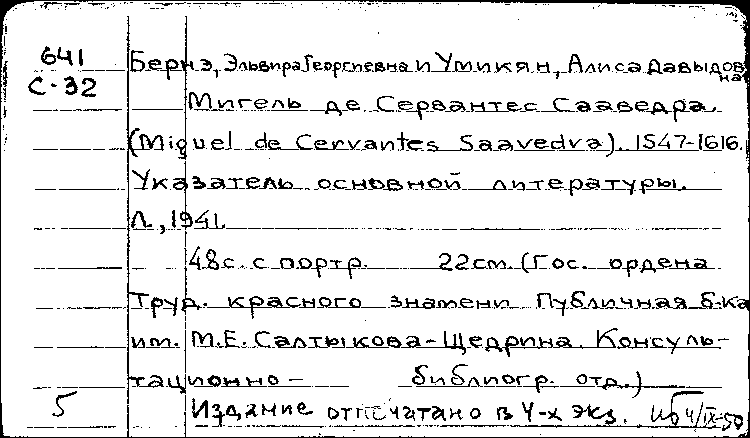 641
С-32
Бернэ, Эльвира Георгиевна и Умикян, Алиса Давыдовна
Мигель де Сервантес Сааведра.
(Miguel de Cervantes Saavedva). 1547-1616.
Указатель основной литературы.
Л., 1941.
48с. с портр. 22см. (Гос. ордена
Труд. красного знамени Публичная б-ка
им. М.Е. Салтыкова-Щедрина. Консуль-
тационно- библиогр. отд.)
5 Издание отпечатано в 4-х экз. 4/IX-50